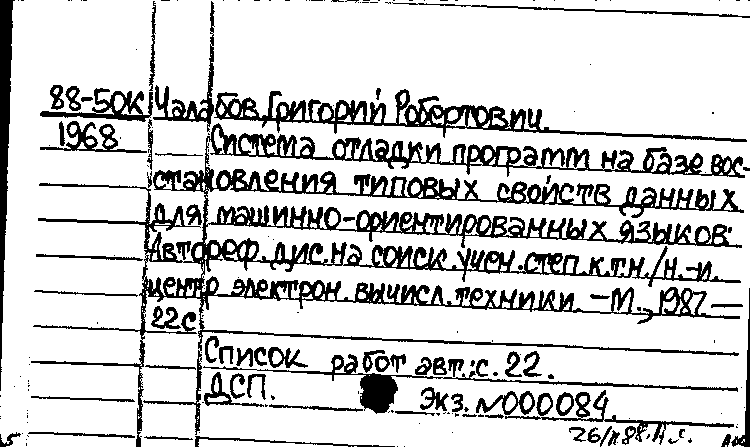 88-50К Чалабов, Григорий Робертович.
1968 Система отладки программ на базе вос-
становления типовых свойств данных
для машинно-ориентированных языков:
Автореф. дис. на соиск. учен. степ. к.т.н. / Н.-и.
центр электрон. вычисл. техники. – М., 1987. —
22с
Список работ авт.: с. 22.
ДСП. Экз. №000084.